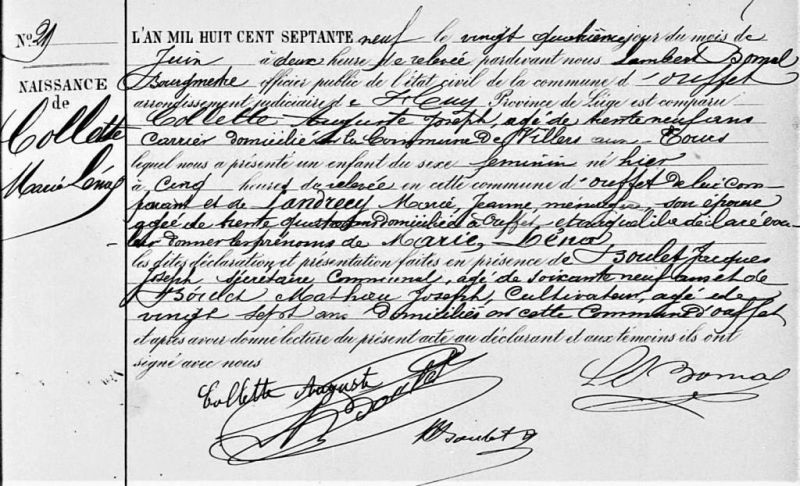 N° 21
NAISSANCE
de
Collette
Marie Léna
L'AN MIL HUIT CENT SEPTANTE neuf le vingt quatrième jour du mois de
Juin à deux heures de relevée pardevant nous Lambert Bomal
Bourgmestre officier public de l'état civil de la commune d'ouffet
arrondissement judiciaire de Huy Province de Liége est comparu
Collette Auguste Joseph, agé de trente neuf ans
carrier domicilié en la Commune De Villers aux Tours
lequel nous a présenté un enfant du sexe feminin né hier
à cinq heures de relevée en cette commune d'ouffet de lui com-
parant et de Landrecy Marie Jeanne, ménagère, son épouse
agée de trente quatre ans domiciliée à ouffet, et auquel il a déclaré vou-
loir donner les prénoms de Marie, Léna
les dites déclaration et présentation faites en présence de Boulet Jacques
Joseph Secrétaire Communal, agé de soixante neuf ans et de
Boulet Mathieu Joseph, Cultivateur, agé de
vingt sept ans domiciliés en cette Commune d'ouffet
et après avoir donné lecture du présent acte au déclarant et aux témoins ils ont
signé avec nous
Collette Auguste
Boulet
Bomal
Boulet